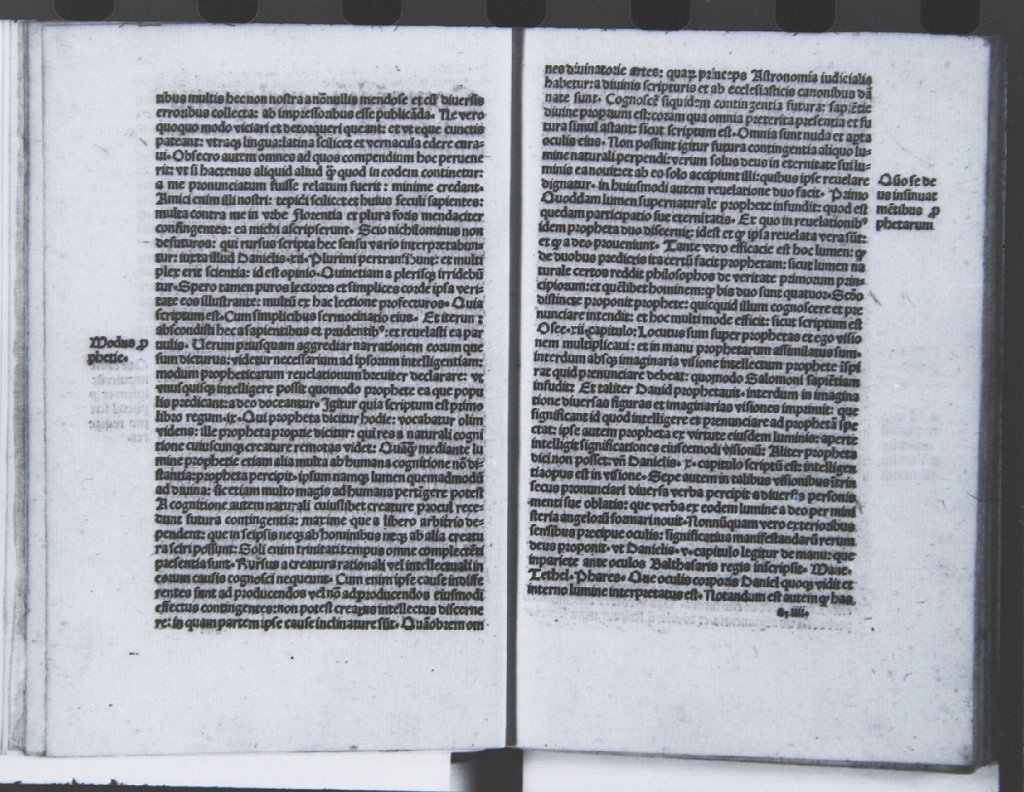 tibus multis hec non nostra a nõnullis mendose et cũ diuersis
erroribus collecta: ab impressoribus esse publicãda. Ne vero
quoquo modo viciari et detorqueri queant: et vt eque cunctis
pateant: vtraq; lingua: latina scilicet et vernacula edere cura-
ui. Obsecro autem omnes ad quos compendium hoc peruene
rit: vt si hactenus aliquid aliud q̃ quod in eodem continetur:
a me pronunciatum fuisse relatum fuerit: minime credant.
Amici enim illi nostri: tepidi scilicet et huius seculi sapientes:
multa contra me in vrbe Florentia et plura foris mendaciter
confingentes: ea michi ascripserunt. Scio nichilominus non
defuturos: qui rursus scripta hec sensu vario interpretabun-
tur: iuxta illud Danielis. xii. Plurimi pertransibunt: et multi
plex erit scientia: id est opinio. Quinetiam a plerisq; irridebũ
tur. Spero tamen puros lectores et simplices corde ipsa veri-
tate eos illustrante: multũ ex hac lectione profecturos. Quia
scriptum est. Cum simplicibus sermocinatio eius. Et iterun:
abscondisti hec a sapientibus et prudentib⁹: et reuelasti ea par
uulis. Uerum priusquam aggrediar narrationem eorum que
Modus ꝓ
phetie.
sum dicturus: videtur necessarium ad ipsorum intelligentiam:
modum propheticarum reuelationum breuiter declarare: vt
vnusquisq; intelligere possit quomodo prophete ea que popu
lis predicant: a deo doceantur. Igitur quia scriptum est primo
libro regum. ix. Qui propheta dicitur hodie: vocabatur olim
videns: ille propheta proprie dicitur: qui res a naturali cogni
tione cuiuscunq; creature remotas videt: Quãq̃ mediante lu
mine prophetie etiam alia multa ab humana cognitione nõ di-
stantia: propheta percipit. ipsum namq; lumen quemadmodũ
ad diuina: sic etiam multo magis ad humana pertigere potest
A cognitione autem naturali cuiuslibet creature procul rece-
dunt futura contingentia: maxime que a libero arbitrio de-
pendent: que in seipsis neq; ab hominibus neq; ab alia creatu
ra sciri possunt: Soli enim trinitati tempus omne complectẽti
praesentia sunt. Rursus a creatura rationali vel intellectuali in
eorum causis cognosci nequeunt. Cum enim ipse cause indiffe
rentes sunt ad producendos vel nõ ad producendos eiusmodi
effectus contingentes: non potest creatus intellectus discerne
re: in quam partem ipse cause inclinature sũt. Quãobrem om
nes diuinatorie artes: quaꝝ princeps Astronomia iudicialis
habetur: a diuinis scripturis et ab ecclesiasticis canonibus dã
nate sunt. Cognoscẽ siquidem contingentia futura: sapiẽtie
diuine proprium est: coram qua omnia preterita presentia et fu
tura simul astant: sicut scriptum est. Omnia sunt nuda et apta
oculis eius. Non possunt igitur futura contingentia aliquo lu-
mine naturali perpendi: verum solus deus in eternitate sui lu-
minis ea nouit: et ab eo solo accipiunt illi: quibus ipse reuelare
dignatur. in huiusmodi autem reuelatione duo facit. Primo
Quõ se de
us insinuat
mẽtibus ꝓ
phetarum
Quoddam lumen supernaturale prophete infundit: quod est
quedam participatio sue eternitatis. Ex quo in reuelationib⁹
idem propheta duo discernit: id est et ꝙ ipsa reuelata vera sũt:
et ꝙ a deo proueniunt. Tante vero efficacie est hoc lumen: ꝙ
de duobus predictis ita certũ facit prophetam: sicut lumen na
turale certos reddit philosophos de veritate primorum prin-
cipiorum: et quẽlibet hominem: ꝙ bis duo sunt quatuor. Scðo
distincte proponit prophete: quicquid illum cognoscere et pre
nunciare intendit: et hoc multimode efficit: sicut scriptum est
Osee. xii. capitulo: Locutus sum super prophetas et ego visio
nem multiplicaui: et in manu prophetarum assimilatus sum.
interdum absq; imaginaria visione intellectum prophete ĩspi
rat quid prenunciare debeat: quomodo Salomoni sapiẽtiam
infudit: Et taliter Dauid prophetauit. interdum in imagina
tione diuersas figuras et imaginarias visiones imprimit: que
significant id quod intelligere et prenunciare ad prophetã spe
ctat: ipse autem propheta ex virtute eiusdem luminis: aperte
intelligit significationes eiuscemodi visionũ: Aliter propheta
dici non posset: vñ Danielis. x. capitulo scriptũ est: intelligen
tia opus est in visione. Sepe autem in talibus visionibus ĩtrin
secus pronunciari diuersa verba percipit a diuersis personis
menti sue oblatis: que verba ex eodem lumine a deo per mini
steria angeloꝝ formari nouit. Nonnũquam vero exterioribus
sensibus precipue oculis: significatiua manifestandarũ rerum
deus proponit. vt Danielis. v. capitulo legitur de manu: que
in pariete ante oculos Balthasaris regis inscripsit. Mane.
Techel. Phares. Que oculis corporis Daniel quoq; vidit et
interno lumine interpretatus est. Notandum est autem ꝙ has
a. iiii.